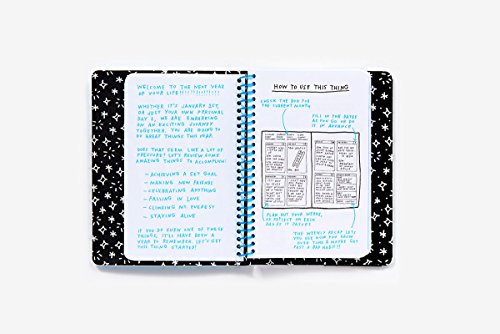 WELCOME TO THE NEXT YEAR
OF YOUR LIFE!!!!!!!!!!!!!
WHETHER IT'S JANUARY 1ST,
OR JUST YOUR OWN PERSONAL
DAY 1, WE ARE EMBARKING
ON AN EXCITING JOURNEY
TOGETHER. YOU ARE GOING TO
DO GREAT THINGS THIS YEAR.
DOES THAT SEEM LIKE A LOT OF
PRESSURE? LET'S REVIEW SOME
AMAZING THINGS TO ACCOMPLISH:
- ACHIEVING A SET GOAL
- MAKING NEW FRIENDS
- CELEBRATING ANYTHING
- FALLING IN LOVE
- CLIMBING MT. EVEREST
- STAYING ALIVE
IF YOU DO EVEN ONE OF THESE
THINGS, IT'LL HAVE BEEN A
YEAR TO REMEMBER. LET'S GET
THIS THING STARTED!
HOW TO USE THIS THING
CHECK THE BOX FOR
THE CURRENT MONTH
FILL IN THE DATES
AS YOU GO OR DO
IT IN ADVANCE
PLAN OUT YOUR WEEKS,
OR REFLECT ON EACH
DAY AS IT PASSES
THE WEEKLY RECAP LETS
YOU SEE HOW YOU GROW
OVER TIME & MAYBE GET
PAST A BAD HABIT!!